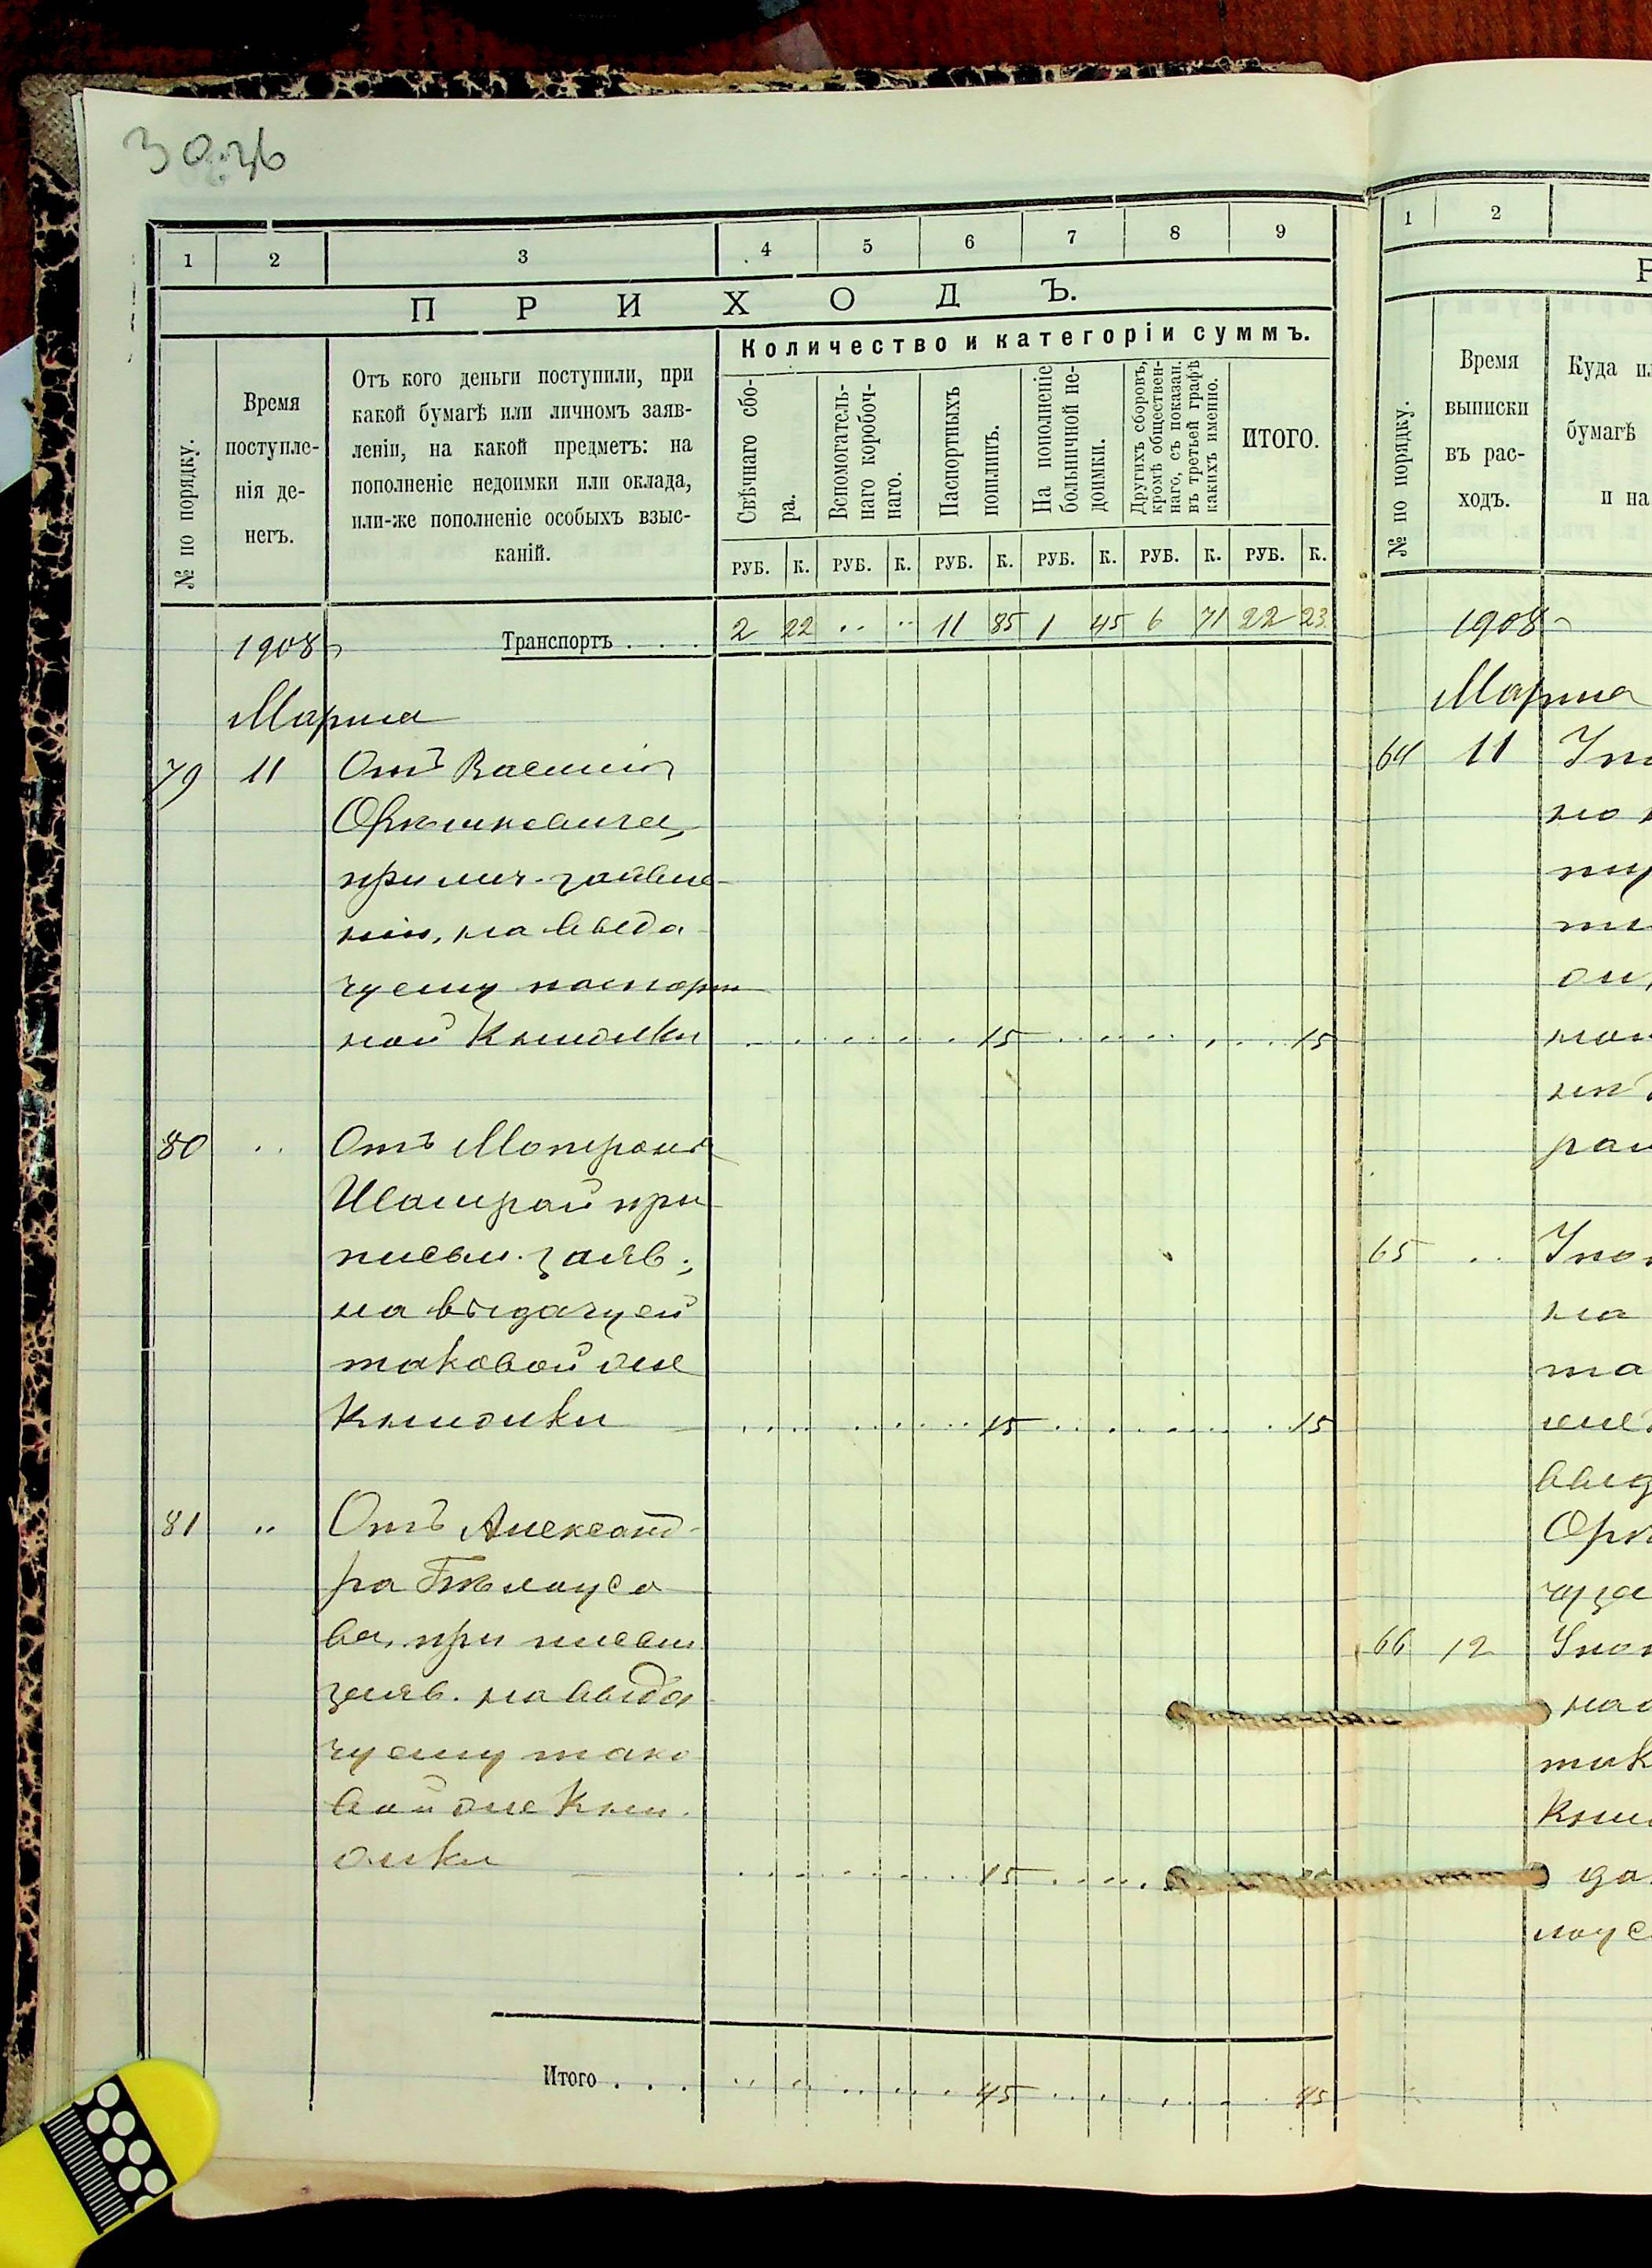 1 2 3 4 5 6 7 8 9
П Р И Х О Д Ъ.
№ по порядку.
Время
поступле-
нія де-
негъ.
Отъ кого деньги поступили, при
какой бумагѣ или личномъ заяв-
леніи, на какой предметъ: на
пополненіе недоимки или оклада,
или-же пополненіе особыхъ взыс-
каній.
Количество и категоріи суммъ.
Свѣчнаго сбо-
ра.
Вспомогатель-
наго коробоч-
наго.
Паспортныхъ
пошлинъ.
На пополненіе
больничной не-
доимки.
Другихъ сборовъ,
кромѣ обществен-
наго, съ показан.
въ третьей графѣ
какихъ именно.
ИТОГО.
РУБ. К. РУБ. К. РУБ. К. РУБ. К. РУБ. К. РУБ. К.
1908 г Транспортъ . . . 2 22 .. .. 11 85 1 45 6 71 22 23
Марта
79 11 Отъ Василія
при лич. заявле
ніи, на выда
чу ему паспорт
ной книжки 15 15
80 .. Отъ
при
письм. заяв.;
на выдачу ей
таковой же
книжки 15 15
81 .. Отъ Александ-
ра Бѣлоусо
ва, при письм.
заяв. на выда
чу ему тако
вой же кни
жки 15
Итого . . . 45 45
1 2
№ по порядку.
Время
выписки
въ рас-
ходъ.
Куда
бумагѣ
и на
1908 г
Марта
64 11
65 ..
на
66 12